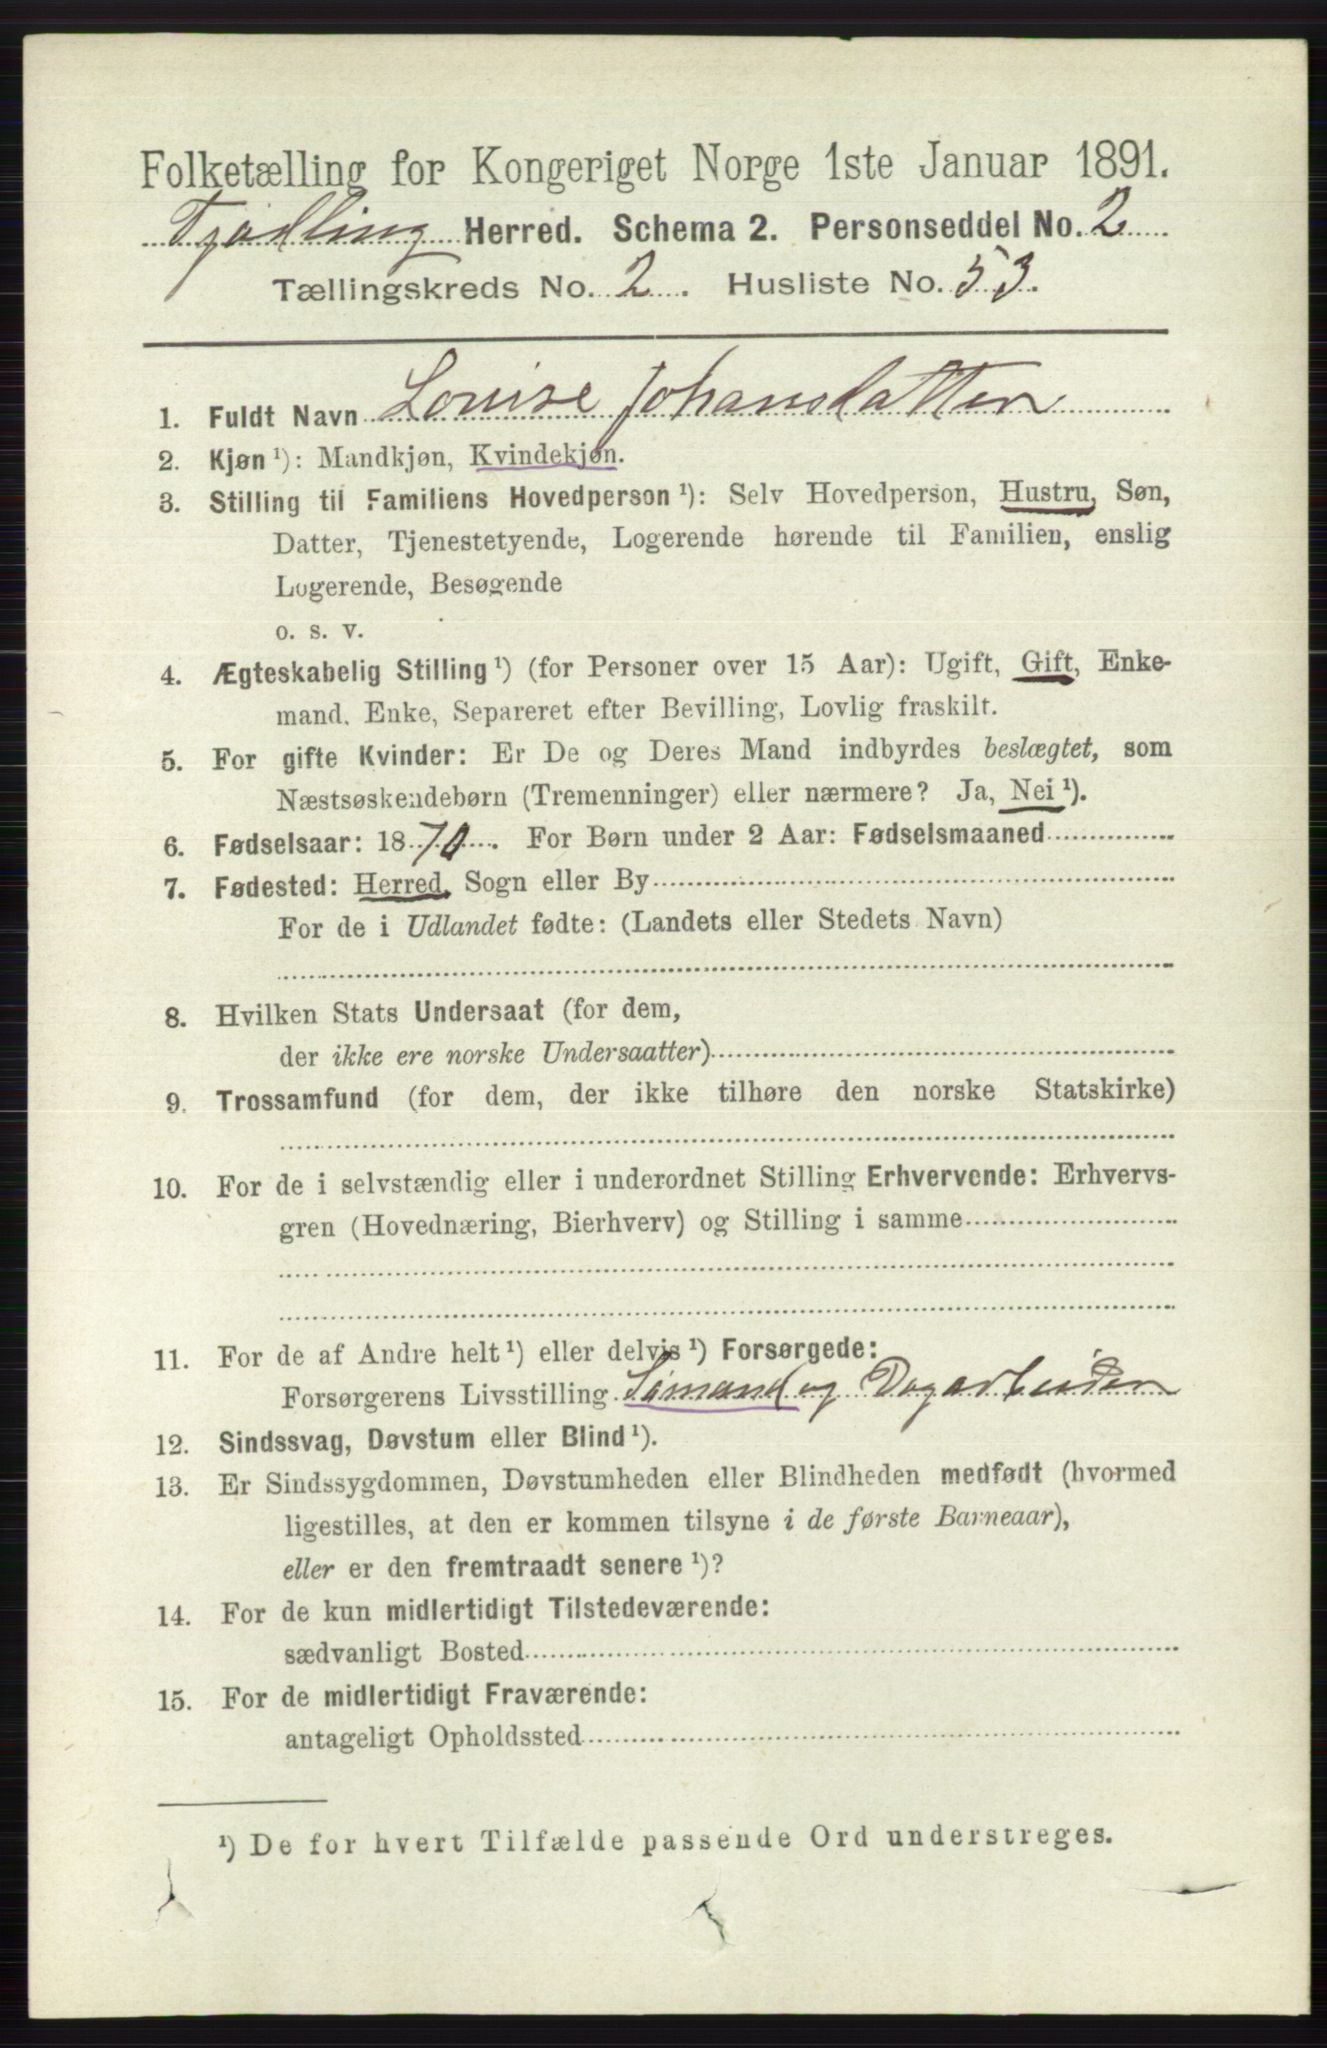 Folketælling for Kongeriget Norge 1ste Januar 1891.
Tjødling Herred. Schema 2. Personseddel No. 2
Tællingskreds No. 2. Husliste No. 53.
1. Fuldt Navn Louise Johansdatter
2. Kjøn ¹): Mandkjøn, Kvindekjøn.
3. Stilling til Familiens Hovedperson ¹): Selv Hovedperson, Hustru, Søn,
Datter, Tjenestetyende, Logerende hørende til Familien, enslig
Logerende, Besøgende
o. s. v.
4. Ægteskabelig Stilling ¹) (for Personer over 15 Aar): Ugift, Gift, Enke-
mand, Enke, Separeret efter Bevilling, Lovlig fraskilt.
5. For gifte Kvinder: Er De og Deres Mand indbyrdes beslægtet, som
Næstsøskendebørn (Tremenninger) eller nærmere? Ja, Nei ¹).
6. Fødselsaar: 1870. For Børn under 2 Aar: Fødselsmaaned
7. Fødested: Herred, Sogn eller By
For de i Udlandet fødte: (Landets eller Stedets Navn)
8. Hvilken Stats Undersaat (for dem,
der ikke ere norske Undersaatter)
9. Trossamfund (for dem, der ikke tilhøre den norske Statskirke)
10. For de i selvstændig eller i underordnet Stilling Erhvervende: Erhvervs-
gren (Hovednæring, Bierhverv) og Stilling i samme
11. For de af Andre helt ¹) eller delvis ¹) Forsørgede:
Forsørgerens Livsstilling Sømand og Dagarbeider
12. Sindssvag, Døvstum eller Blind ¹).
13. Er Sindssygdommen, Døvstumheden eller Blindheden medfødt (hvormed
ligestilles, at den er kommen tilsyne i de første Barneaar),
eller er den fremtraadt senere ¹)?
14. For de kun midlertidigt Tilstedeværende:
sædvanligt Bosted
15. For de midlertidigt Fraværende:
antageligt Opholdssted
¹) De for hvert Tilfælde passende Ord understreges.